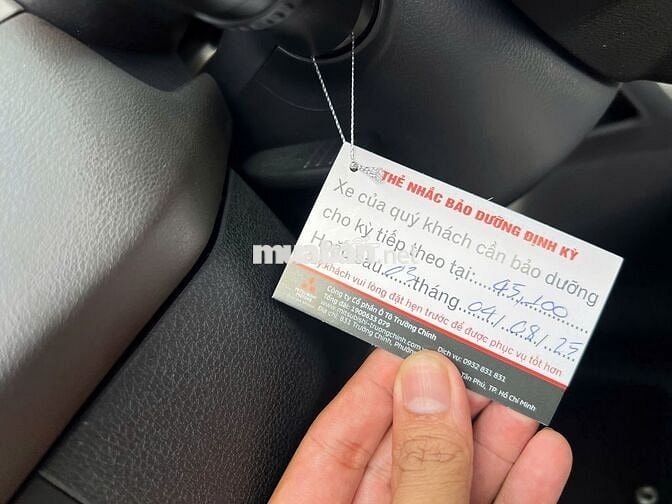 THẺ NHẮC BẢO DƯỠNG ĐỊNH KỲ
Xe của quý khách cần bảo dưỡng
cho kỳ tiếp theo tại:....45.100
sau..03..tháng..04/.08/.25.
khách vui lòng đặt hẹn trước để được phục vụ tốt hơn
Công ty Cổ phần Ô Tô Trường Chinh
Tổng đài: 1900633 079
Dịch vụ: 0932 831 831
Địa chỉ: 831 Trường Chinh, Phường
Tân Phú, TP. Hồ Chí Minh
muaban.net